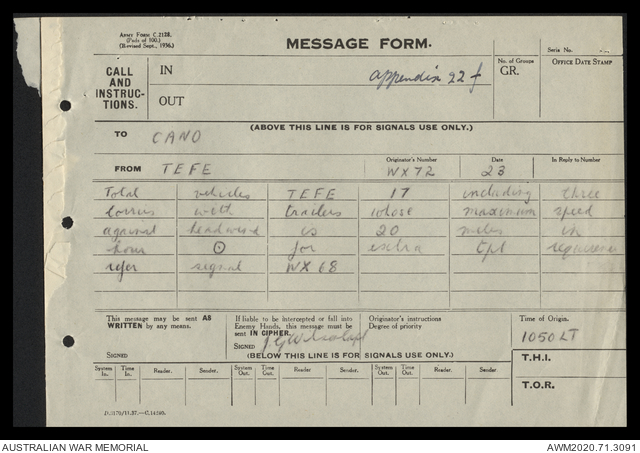 ARMY FORM C.2128.
(Pads of 100.)
(Revised Sept., 1936.)
MESSAGE FORM.
Serial No.
CALL AND INSTRUCTIONS.
IN
OUT
appendix 22 f
No. of Groups
GR.
OFFICE DATE STAMP
(ABOVE THIS LINE IS FOR SIGNALS USE ONLY.)
TO CANO
FROM TEFE
Originator's Number
WX72
Date
23
In Reply to Number
Total vehicles TEFE 17 including three
lorries with trailers whose maximum speed
against headwind is 20 miles in
hour ⊙ for extra tpt
refer signal WX 68
This message may be sent AS WRITTEN by any means.
SIGNED
If liable to be intercepted or fall into Enemy Hands, this message must be sent IN CIPHER.
SIGNED
Originator's instructions
Degree of priority
Time of Origin.
1050 LT
(BELOW THIS LINE IS FOR SIGNALS USE ONLY.)
T.H.I.
T.O.R.
System In. Time In. Reader. Sender. System Out. Time Out. Reader. Sender. System Out. Time Out. Reader. Sender.
AUSTRALIAN WAR MEMORIAL
AWM2020.71.3091